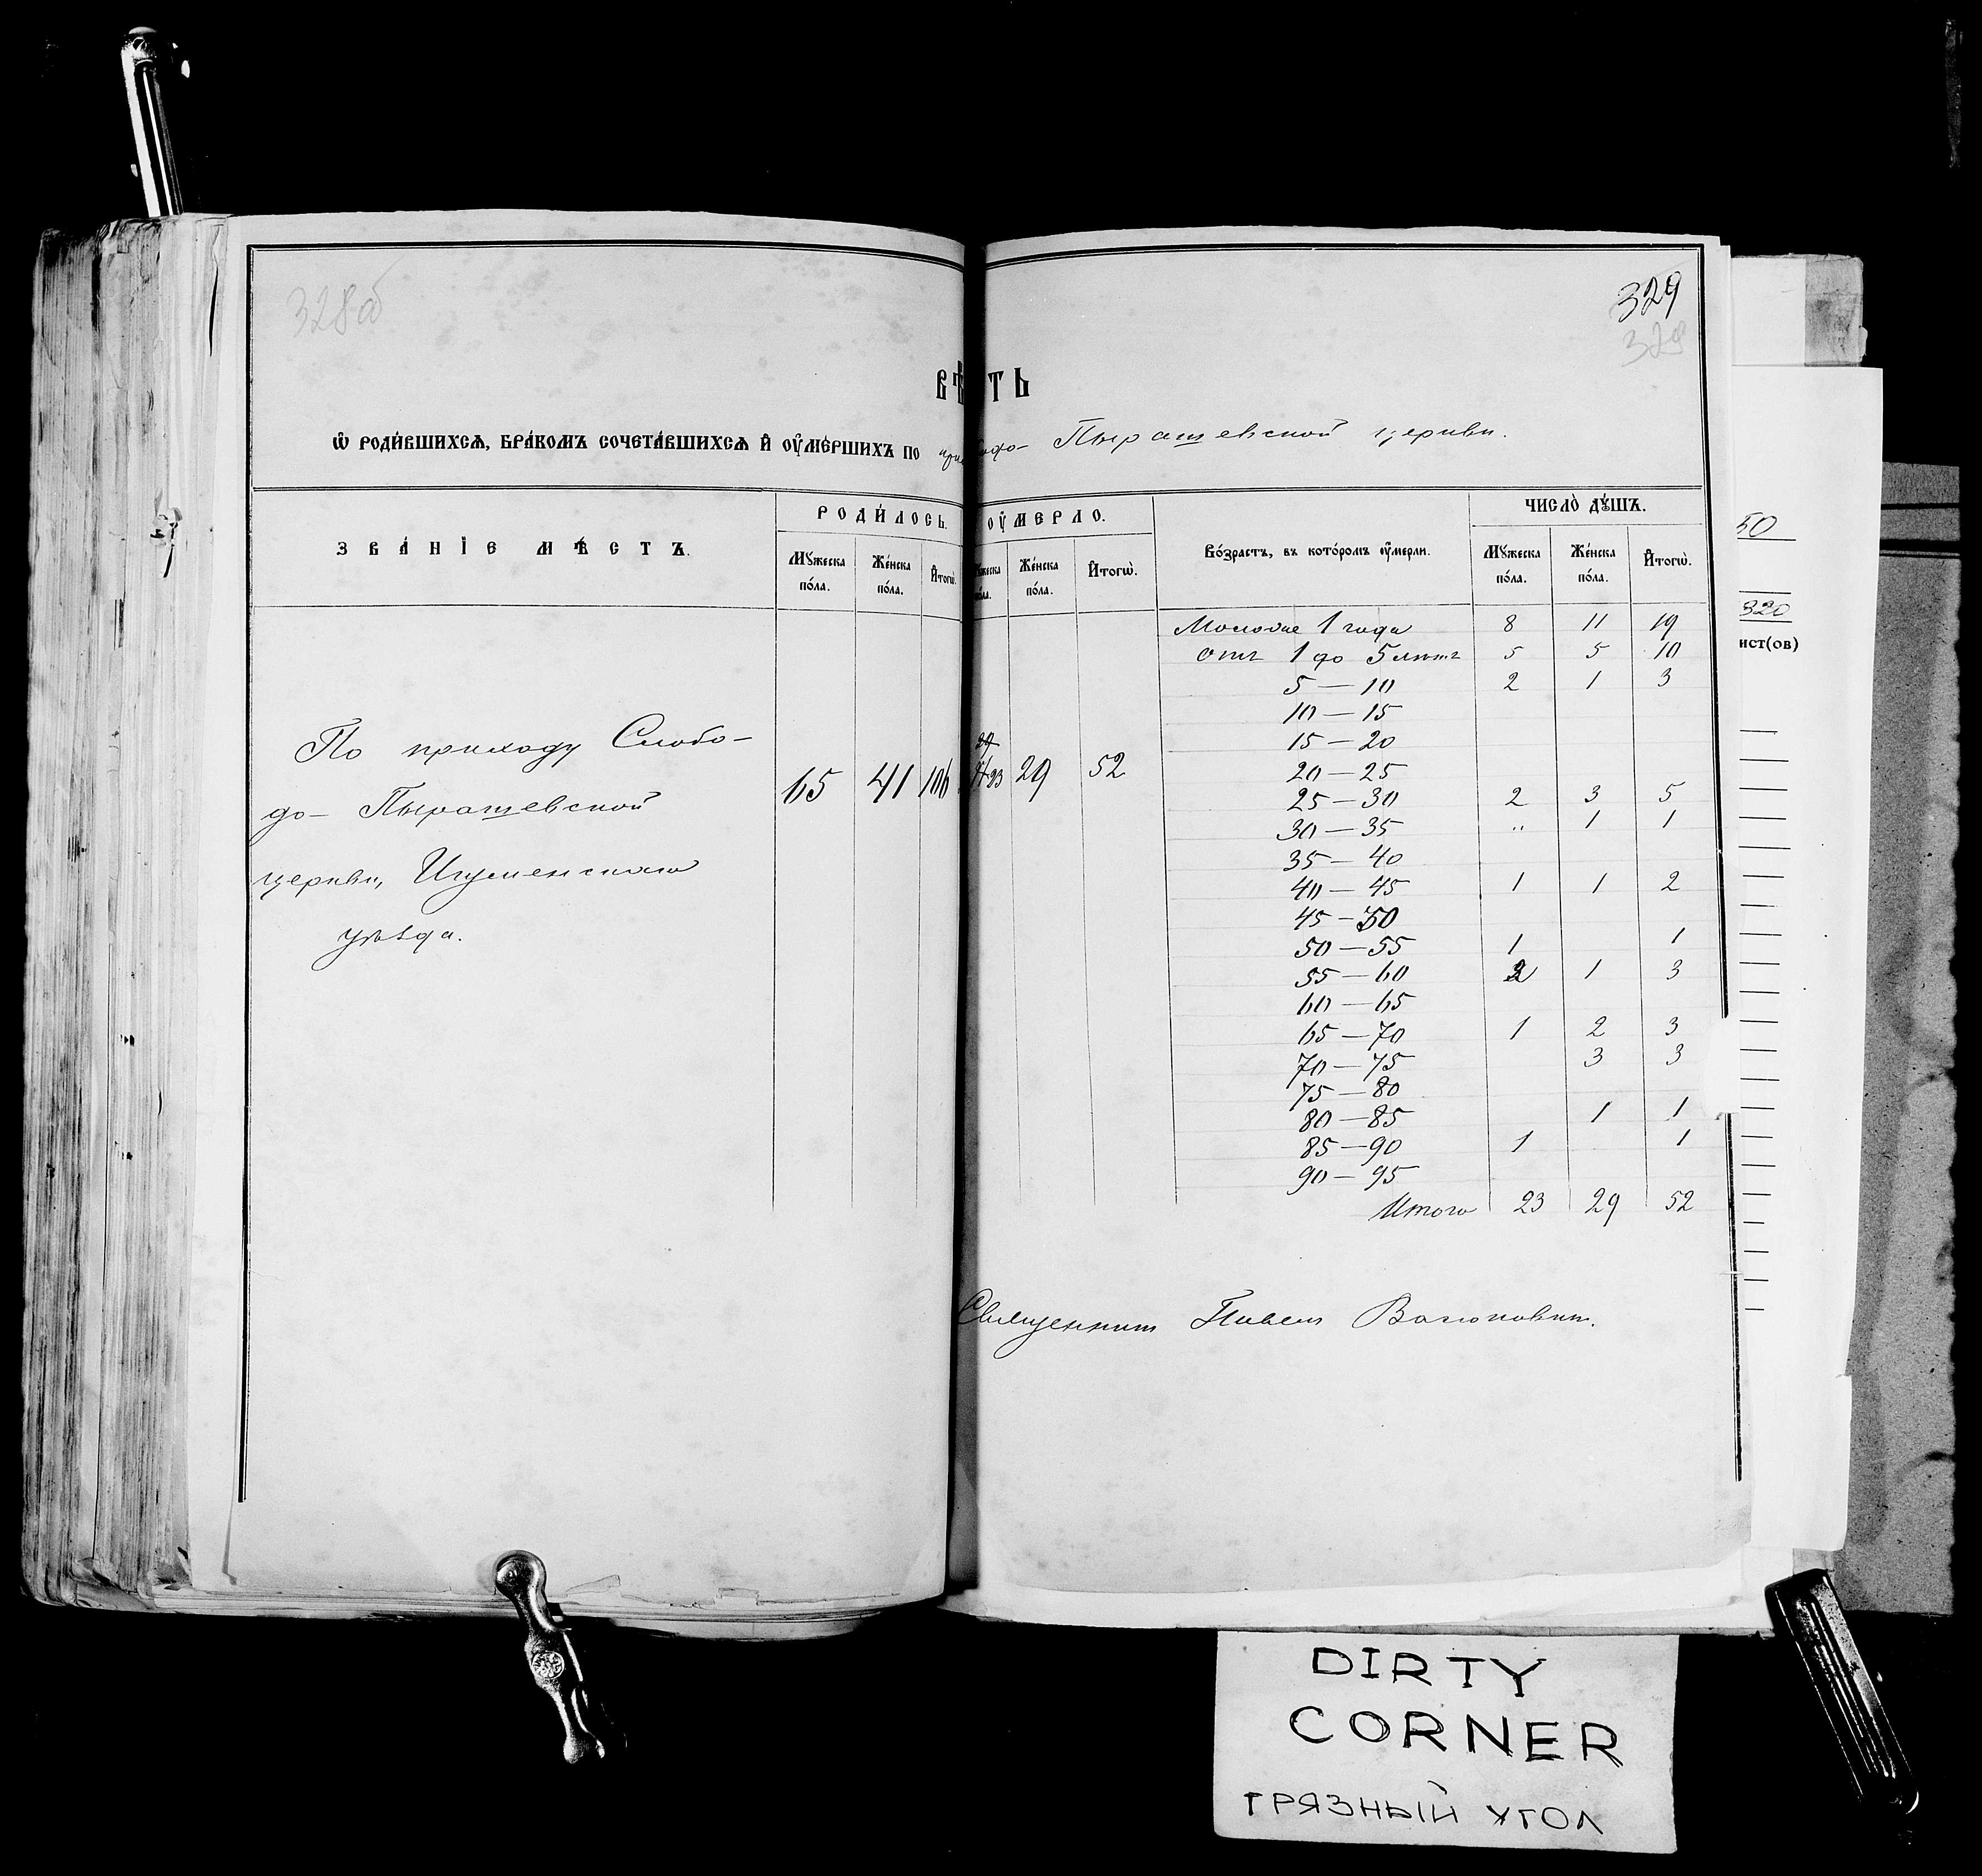 328об
329
329
вѣ ть
Ѽ роди́вшихсѧ, бра́комъ сочета́вшихсѧ и҆ ᲂу҆ме́ршихъ по
Пырашевской церкви.
Зва́нїе мѣ́стъ.
Роди́лось.
ᲂу҆мерло.
Мꙋжеска по́ла.
Же́нска по́ла.
И҆тогѡ̀.
Же́нска по́ла.
И҆тогѡ̀.
Во́зрастъ, въ кото́ромъ ᲂу҆мерли.
Число̀ дꙋ́шъ.
Мꙋжеска по́ла.
Же́нска по́ла.
И҆тогѡ̀.
По приходу Слобо-
до-Пырашевской
церкви, Игуменскаго
уѣзда.
65 41 106 23 29 52
Моложе 1 года 8 11 19
отъ 1 до 5 лѣтъ 5 5 10
5 — 10 2 1 3
10 — 15
15 — 20
20 — 25
25 — 30 2 3 5
30 — 35 „ 1 1
35 — 40
40 — 45 1 1 2
45 — 50
50 — 55 1 1
55 — 60 2 1 3
60 — 65
65 — 70 1 2 3
70 — 75 3 3
75 — 80
80 — 85 1 1
85 — 90 1 1
90 — 95
Итого 23 29 52
Священникъ Павелъ
50
320
ист(ов)
DIRTY
CORNER
ГРЯЗНЫЙ УГОЛ